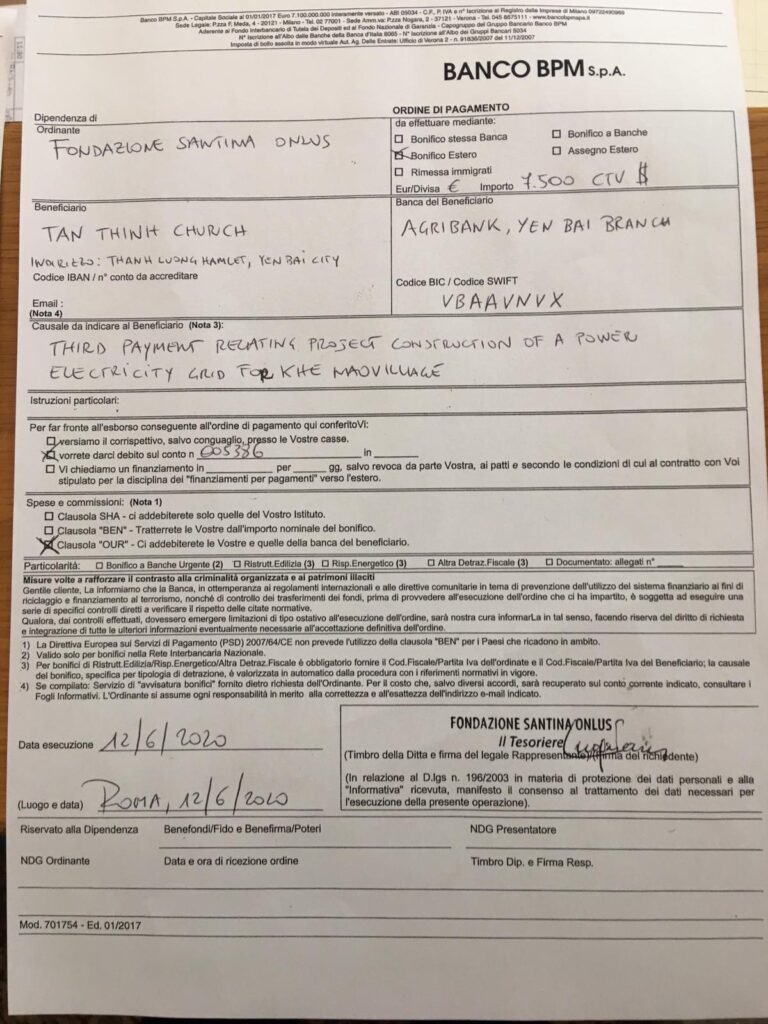 Banco BPM S.p.A. - Capitale Sociale al 01/01/2017 Euro 7.100.000.000 interamente versato - ABI 05034 - C.F., P. IVA e n° Iscrizione al Registro delle Imprese di Milano 09722490969
Sede Legale: P.zza F. Meda, 4 - 20121 - Milano - Tel. 02 77001 - Sede Amm.va: P.zza Nogara, 2 - 37121 - Verona - Tel. 045 8675111 - www.bancobpmspa.it
Aderente al Fondo Interbancario di Tutela dei Depositi ed al Fondo Nazionale di Garanzia - Capogruppo del Gruppo Bancario Banco BPM
N° Iscrizione all'Albo delle Banche della Banca d'Italia 8065 - N° Iscrizione all'Albo dei Gruppi Bancari 5034
Imposta di bollo assolta in modo virtuale Aut. Ag. Delle Entrate: Ufficio di Verona 2 - n. 91836/2007 del 11/12/2007
BANCO BPM S.p.A.
Dipendenza di
Ordinante
FONDAZIONE SANTINA ONLUS
ORDINE DI PAGAMENTO
da effettuare mediante:
☐ Bonifico stessa Banca ☐ Bonifico a Banche
☒ Bonifico Estero ☐ Assegno Estero
☐ Rimessa immigrati
Eur/Divisa € Importo 7.500 CTV $
Beneficiario
TAN THINH CHURCH
INDIRIZZO: THANH LUONG HAMLET, YEN BAI CITY
Codice IBAN / n° conto da accreditare
Email :
(Nota 4)
Banca del Beneficiario
AGRIBANK, YEN BAI BRANCH
Codice BIC / Codice SWIFT
VBAAVNVX
Causale da indicare al Beneficiario (Nota 3):
THIRD PAYMENT RELATING PROJECT CONSTRUCTION OF A POWER
ELECTRICITY GRID FOR KHE NAOVILLAGE
Istruzioni particolari:
Per far fronte all'esborso conseguente all'ordine di pagamento qui conferitoVi:
☐ versiamo il corrispettivo, salvo conguaglio, presso le Vostre casse.
☒ vorrete darci debito sul conto n 005386 in
☐ Vi chiediamo un finanziamento in per gg, salvo revoca da parte Vostra, ai patti e secondo le condizioni di cui al contratto con Voi
stipulato per la disciplina dei "finanziamenti per pagamenti" verso l'estero.
Spese e commissioni: (Nota 1)
☐ Clausola SHA - ci addebiterete solo quelle del Vostro Istituto.
☐ Clausola "BEN" - Tratterrete le Vostre dall'importo nominale del bonifico.
☒ Clausola "OUR" - Ci addebiterete le Vostre e quelle della banca del beneficiario.
Particolarità: ☐ Bonifico a Banche Urgente (2) ☐ Ristrutt.Edilizia (3) ☐ Risp.Energetico (3) ☐ Altra Detraz.Fiscale (3) ☐ Documentato: allegati n°
Misure volte a rafforzare il contrasto alla criminalità organizzata e ai patrimoni illeciti
Gentile cliente, La informiamo che la Banca, in ottemperanza ai regolamenti internazionali e alle direttive comunitarie in tema di prevenzione dell'utilizzo del sistema finanziario ai fini di
riciclaggio e finanziamento al terrorismo, nonché di controllo dei trasferimenti dei fondi, prima di provvedere all'esecuzione dell'ordine che ci ha impartito, è soggetta ad eseguire una
serie di specifici controlli diretti a verificare il rispetto delle citate normative.
Qualora, dai controlli effettuati, dovessero emergere limitazioni di tipo ostativo all'esecuzione dell'ordine, sarà nostra cura informarLa in tal senso, facendo riserva del diritto di richiesta
e integrazione di tutte le ulteriori informazioni eventualmente necessarie all'accettazione definitiva dell'ordine.
1) La Direttiva Europea sui Servizi di Pagamento (PSD) 2007/64/CE non prevede l'utilizzo della clausola "BEN" per i Paesi che ricadono in ambito.
2) Valido solo per bonifici nella Rete Interbancaria Nazionale.
3) Per bonifici di Ristrutt.Edilizia/Risp.Energetico/Altra Detraz.Fiscale è obbligatorio fornire il Cod.Fiscale/Partita Iva dell'ordinate e il Cod.Fiscale/Partita Iva del Beneficiario; la causale
del bonifico, specifica per tipologia di detrazione, è valorizzata in automatico dalla procedura con i riferimenti normativi in vigore.
4) Se compilato: Servizio di "avvisatura bonifici" fornito dietro richiesta dell'Ordinante. Per il costo che, salvo diversi accordi, sarà recuperato sul conto corrente indicato, consultare i
Fogli Informativi. L'Ordinante si assume ogni responsabilità in merito alla correttezza e all'esattezza dell'indirizzo e-mail indicato.
Data esecuzione 12/6/2020
(Luogo e data) ROMA, 12/6/2020
FONDAZIONE SANTINA ONLUS
Il Tesoriere
(Timbro della Ditta e firma del legale Rappresentante) (firma del richiedente)
(In relazione al D.lgs n. 196/2003 in materia di protezione dei dati personali e alla
"Informativa" ricevuta, manifesto il consenso al trattamento dei dati necessari per
l'esecuzione della presente operazione).
Riservato alla Dipendenza Benefondi/Fido e Benefirma/Poteri NDG Presentatore
NDG Ordinante Data e ora di ricezione ordine Timbro Dip. e Firma Resp.
Mod. 701754 - Ed. 01/2017